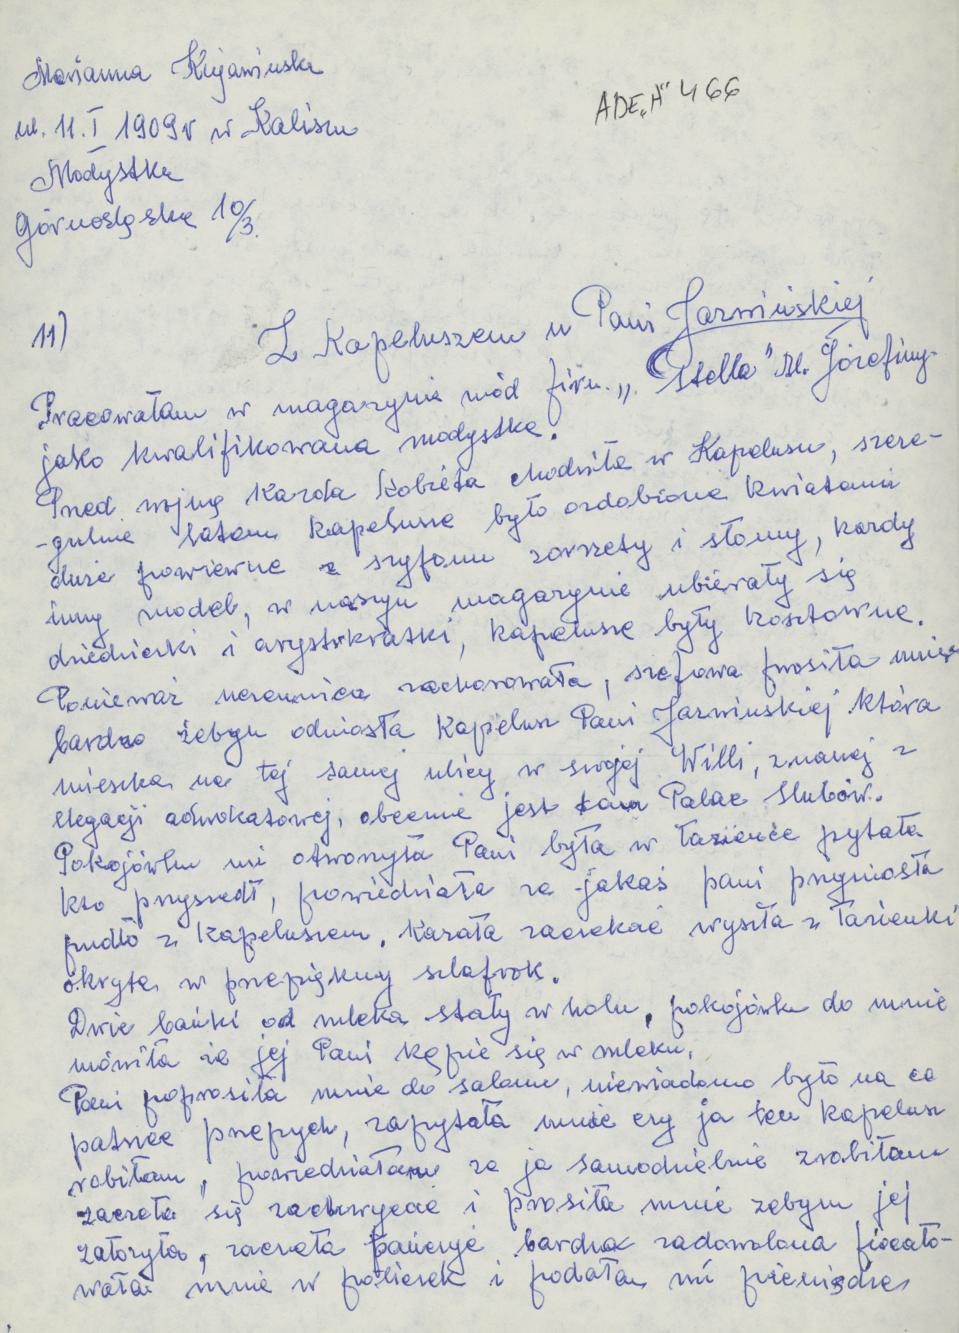 Marianna Kujawińska
ur. 11.I 1909 r w Kaliszu
Modystka
Górnośląska 10/3.
ADE „A" 466
11) Z Kapeluszem u Pani Jarwińskiej
Pracowałam w magazynie mód firm. „Stella" Al. Józefiny
jako kwalifikowana modystka.
Przed wojną każda kobieta chodziła w Kapeluszu, szcze-
-gulnie latem kapelusze było ozdobione kwiatami
duże powiewne z szyfonu żorżety i słomy, każdy
inny model, w naszym magazynie ubierały się
dziedziczki i arystokratki, kapelusze były kosztowne.
Ponieważ uczennica zachorowała, szefowa prosiła mnię
bardzo żebym odniosła Kapelusz Pani Jarwinskiej która
mieszka na tej samej ulicy w swojej Willi, znanej z
elegacji adwokatowej, obecnie jest Pałac Slubów.
Pokojówka mi otworzyła Pani była w łazience pytała
kto przyszedł, powiedziała ze jakaś pani przyniosła
pudło z Kapeluszem. Kazała zaczekać wyszła z łazienki
okryta w przepiękny szlafrok.
Dwie bańki od mleka stały w holu, pokojówka do mnie
mówiła że jej Pani kąpie się w mleku.
Pani poprosiła mnie do salonu, niewiadomo było na co
patrzeć przepych, zapytała mnie czy ja ten kapelusz
robiłam, powiedziałam ze ja samodzielnie zrobiłam
zaczeła się zachwycać i prosiła mnie zebym jej
założyła, zaczeła tańczyć bardzo zadowolona pocało-
wała mnie w policzek i podała mi pieniądze